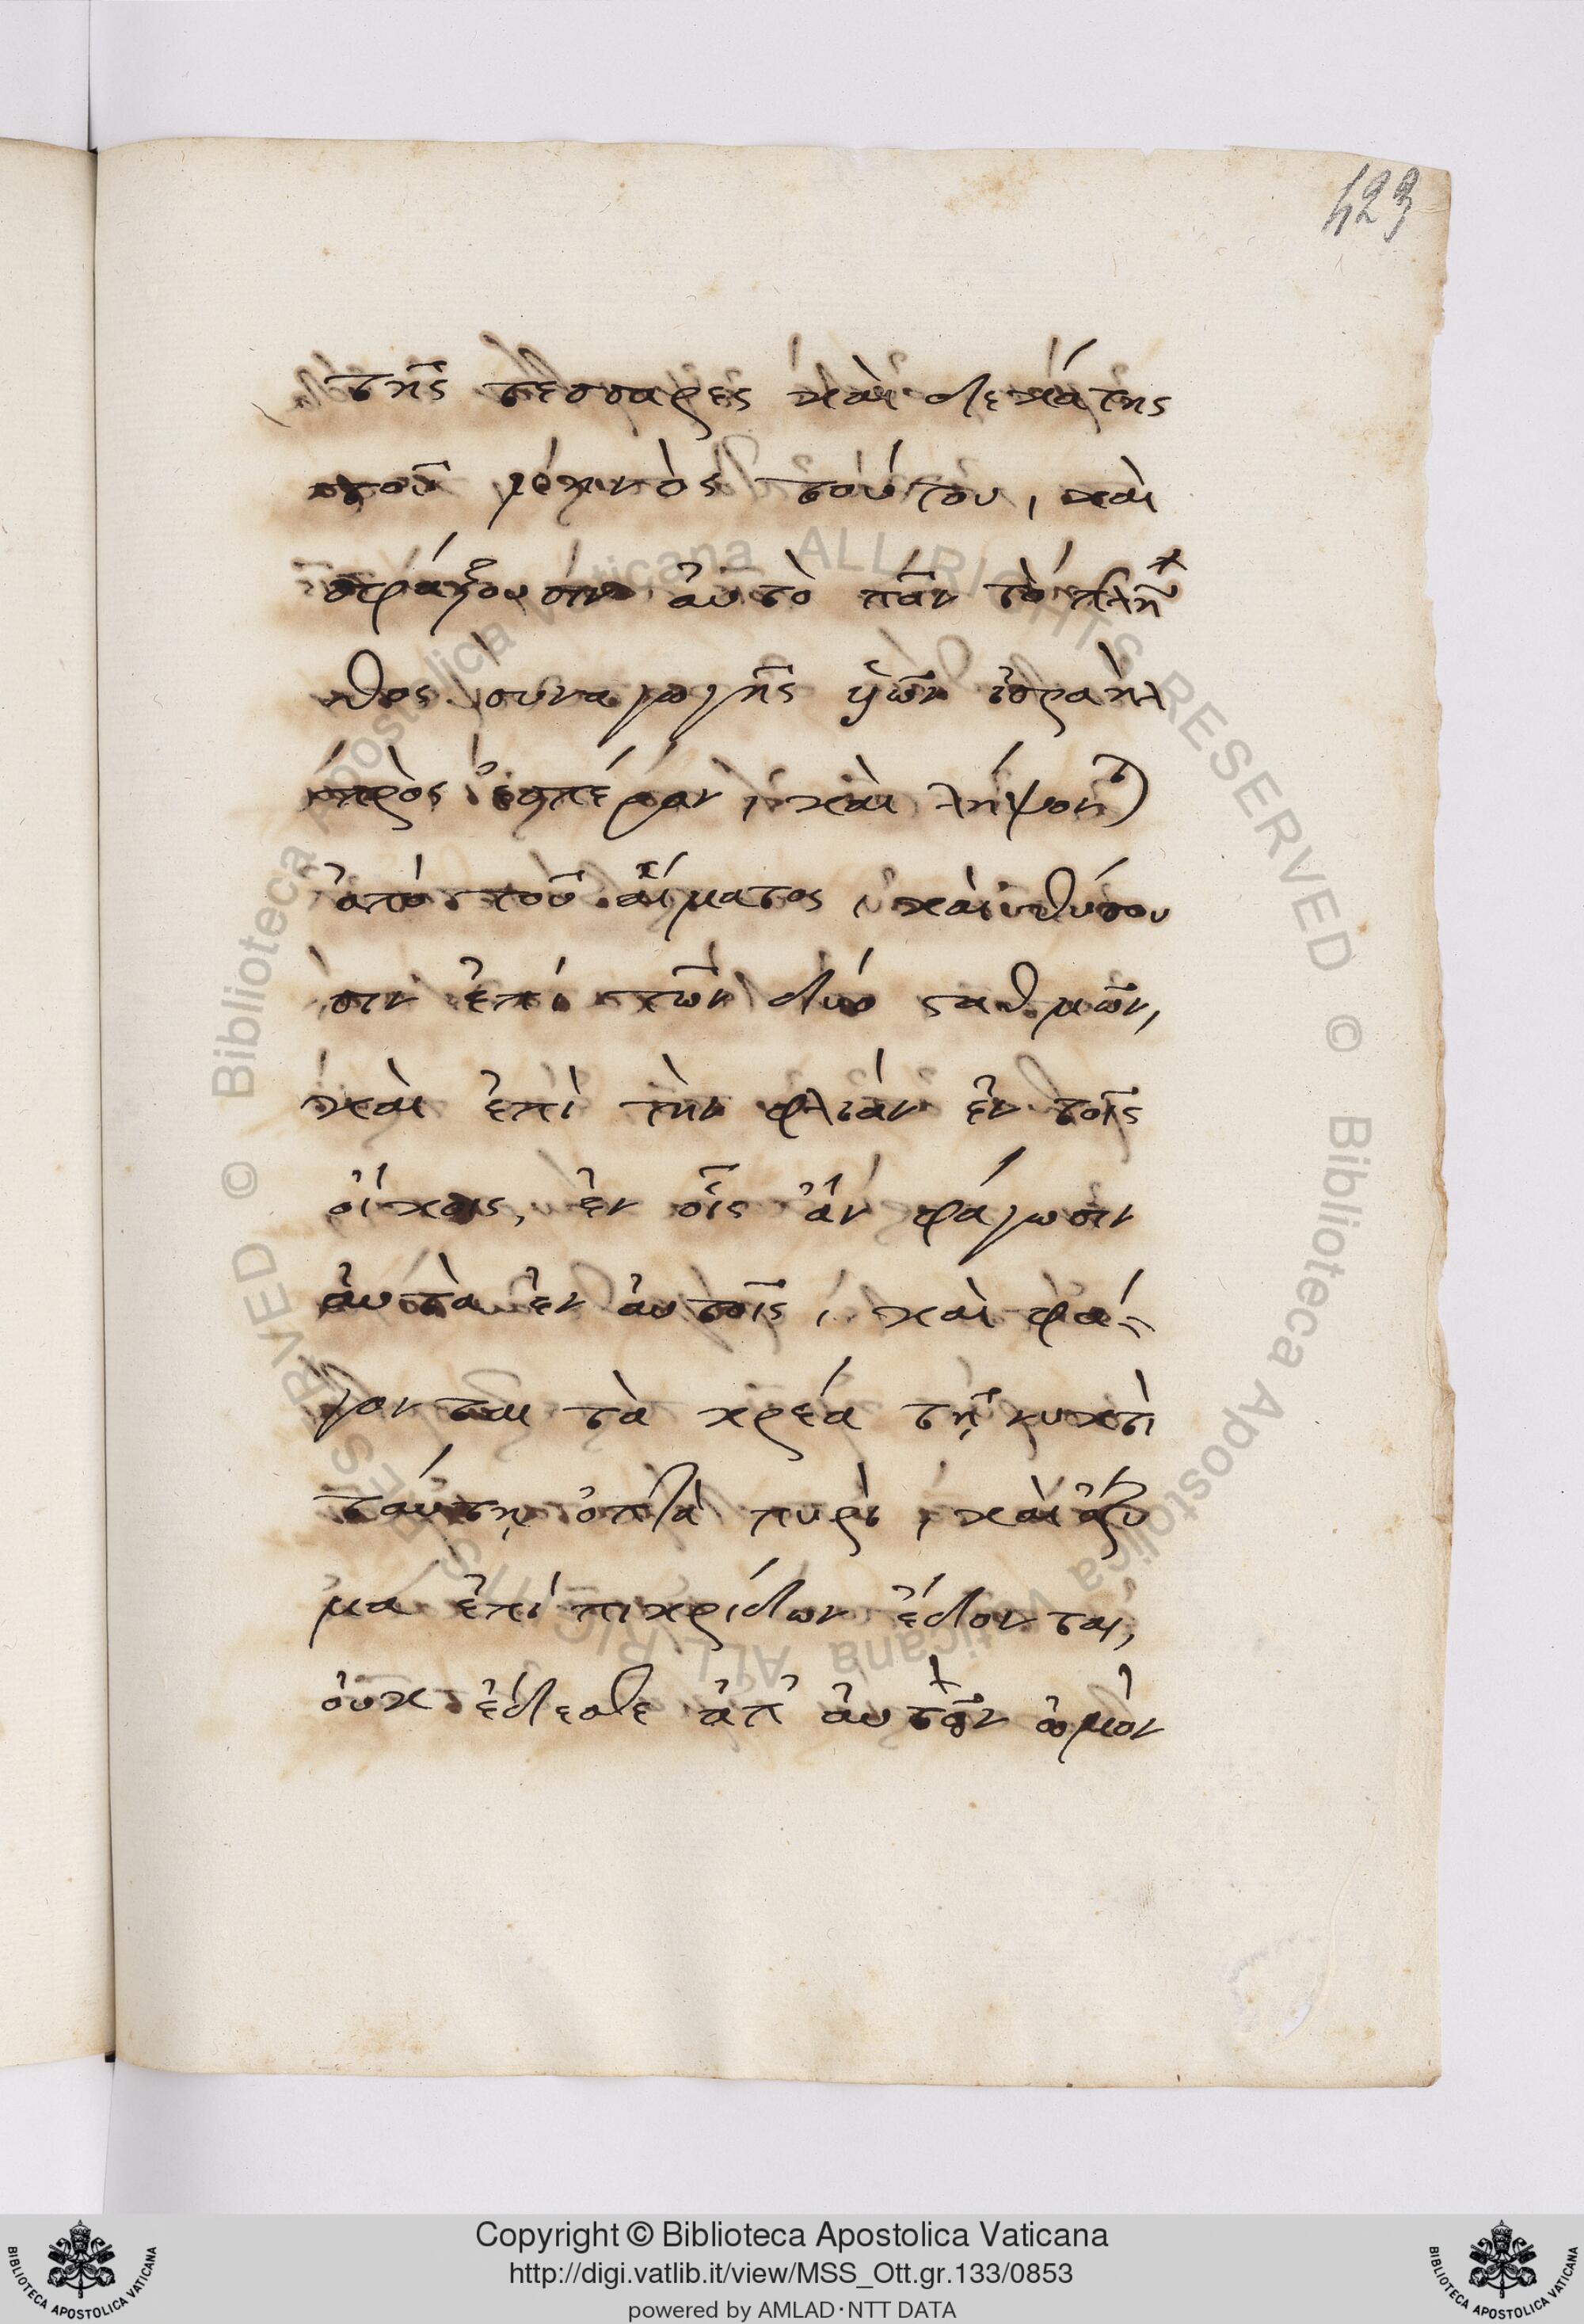 423
τῆς τεσσαρες καὶ δεκάτης
τοῦ μηνὸς τούτου, καὶ
σφάξουσιν ἀυτὸ πᾶν τὸ πλῆ
θος συναγωγῆς ὑῶν ἰσραὴλ
πρὸς ἑσπέραν, καὶ λήψον)
ἀπὸ τοῦ αἵματος, καὶ θύσου
σιν ἐπὶ τῶν δύο ςαθμῶν,
καὶ ἐπὶ τὴν φλιὰν ἐν τοῖς
οἴκοις, ἐν οἷς ἂν φάγωσιν
ἀυτὰ ἐν ἀυτοῖς, καὶ φά-
γονται τὰ κρέα τῇ νυκτὶ
ταύτῃ ὀπτὰ πυρὶ, καὶ ἄζυ
μα ἐπὶ πικρίδων ἔδονται,
ὀυκ ἔδεσθε ἀπ' ἀυτῶν ὠμὸν
© Biblioteca Apostolica Vaticana ALL RIGHTS RESERVED © Biblioteca Apostolica Vaticana ALL RIGHTS RESERVED
Copyright © Biblioteca Apostolica Vaticana
http://digi.vatlib.it/view/MSS_Ott.gr.133/0853
powered by AMLAD·NTT DATA
BIBLIOTECA APOSTOLICA VATICANA
BIBLIOTECA APOSTOLICA VATICANA